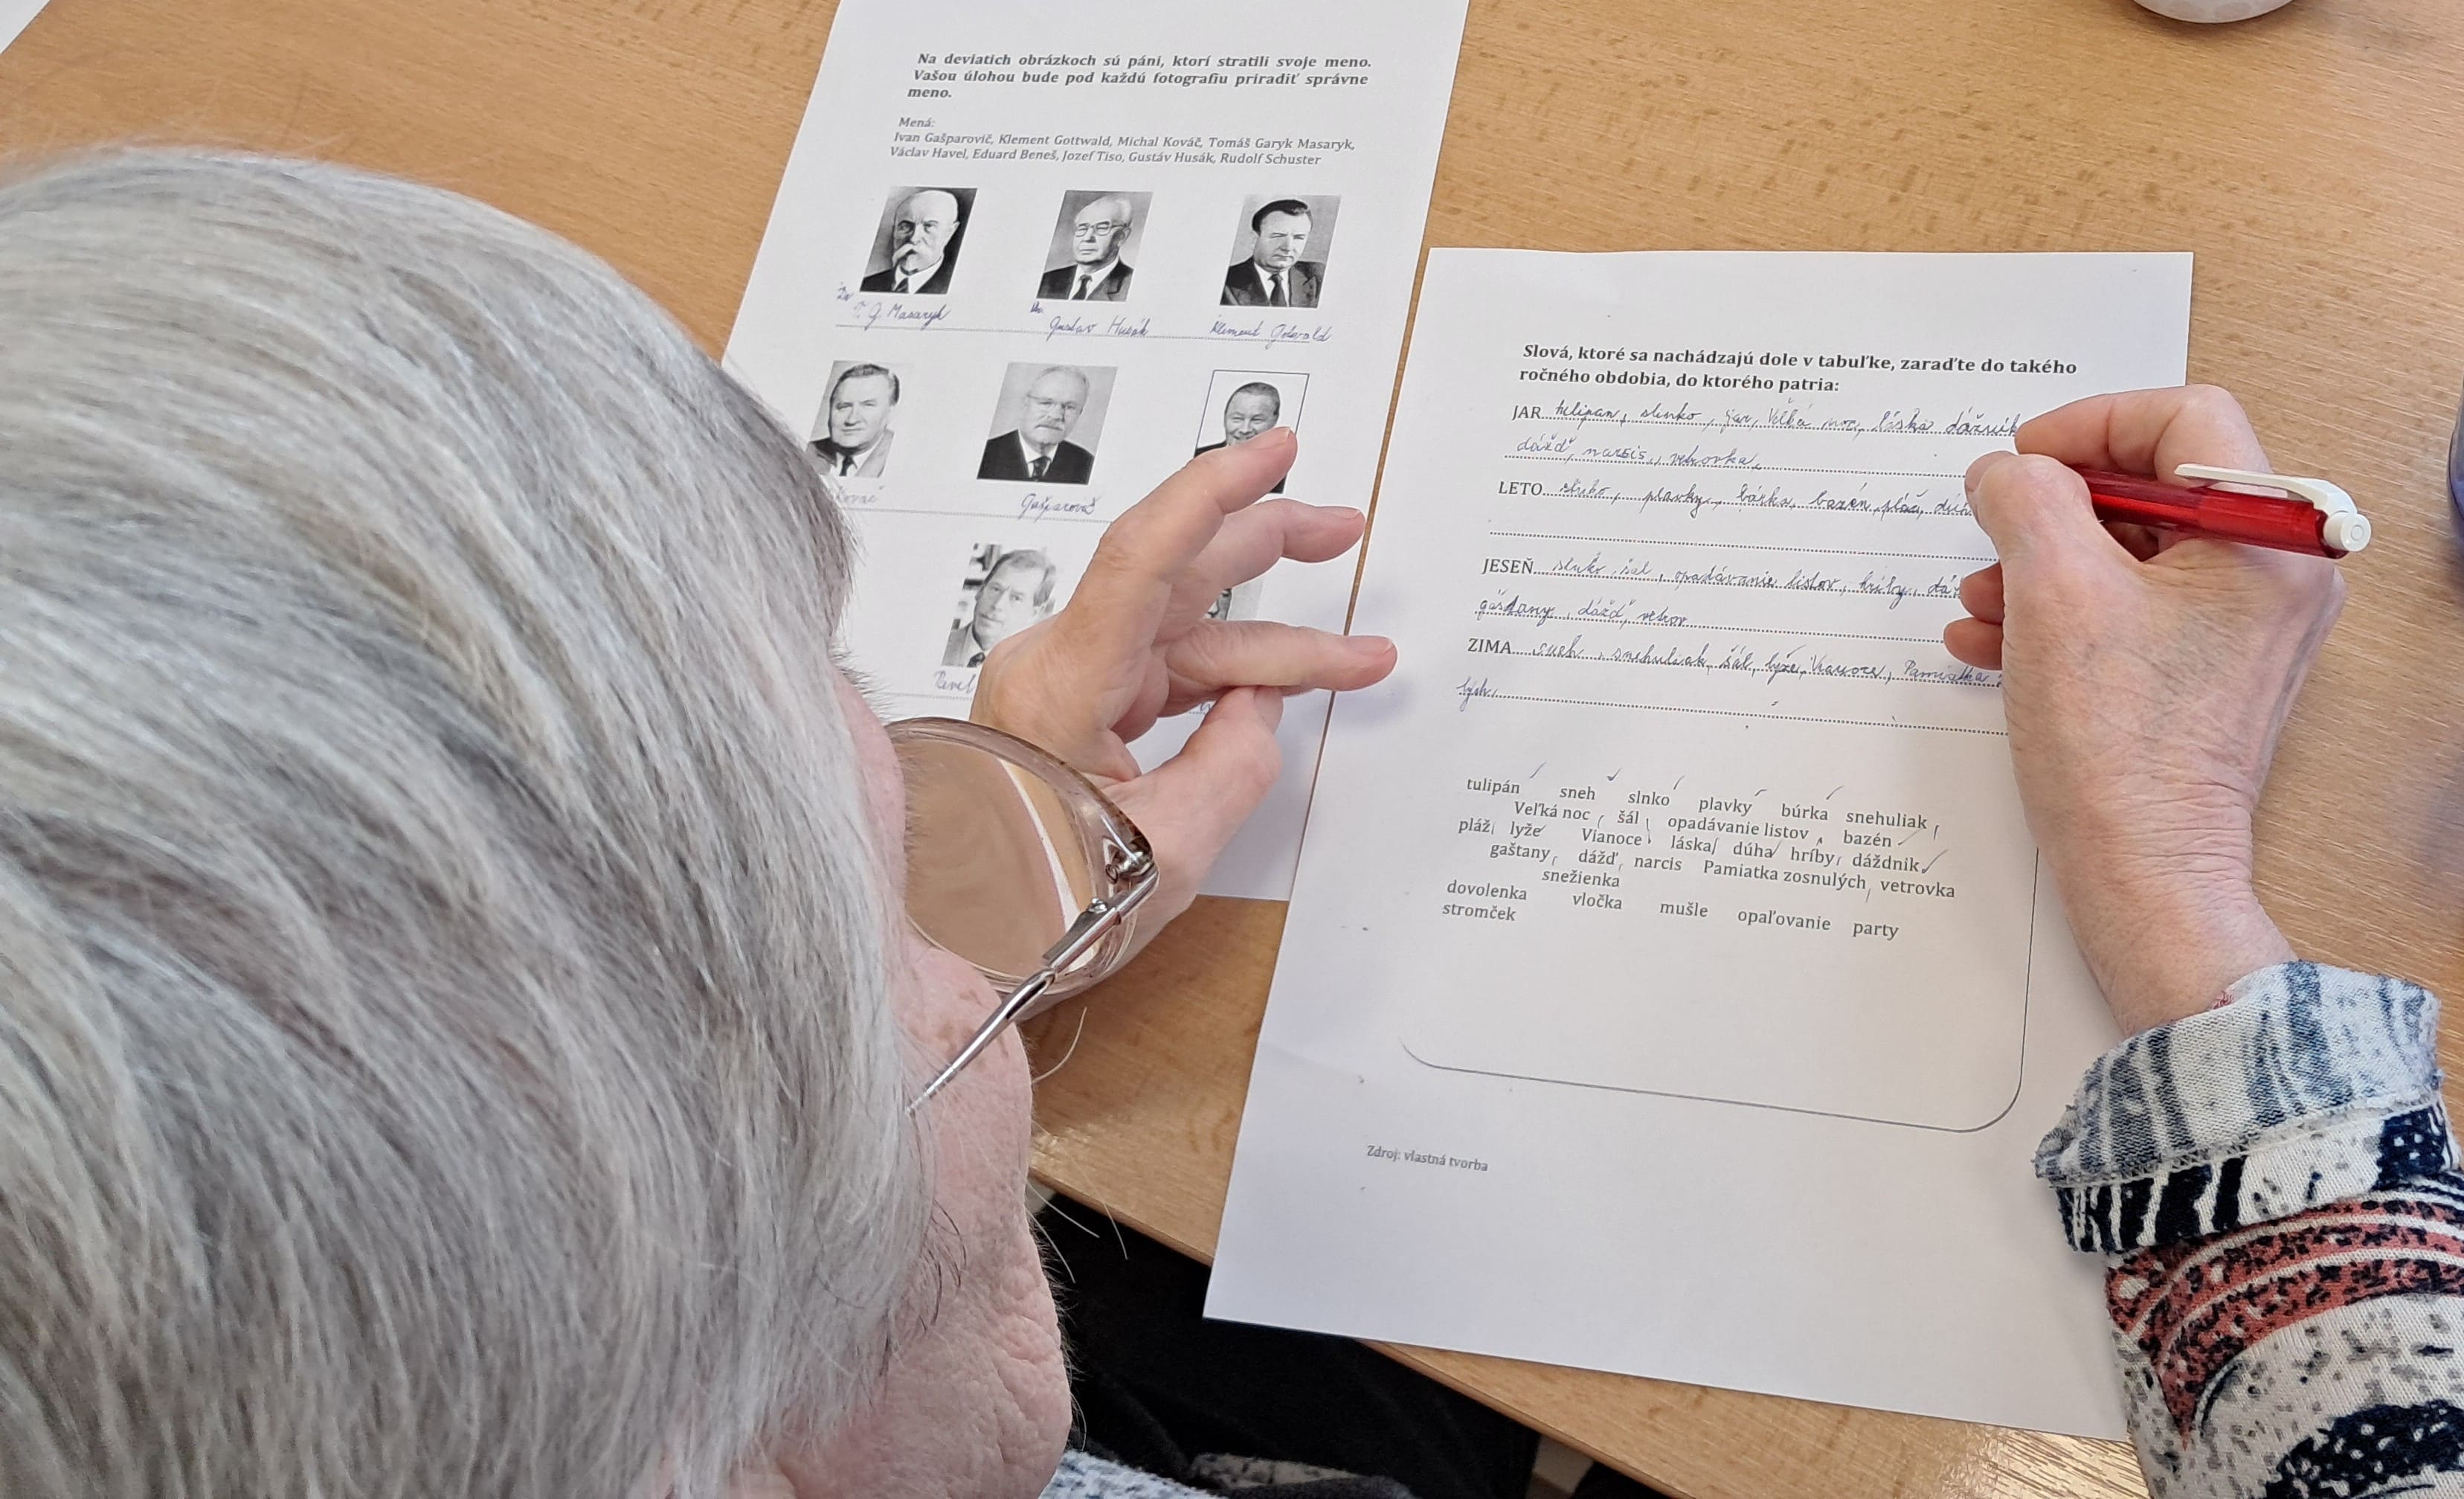 Na deviatich obrázkoch sú páni, ktorí stratili svoje meno.
Vašou úlohou bude pod každú fotografiu priradiť správne
meno.
Mená:
Ivan Gašparovič, Klement Gottwald, Michal Kováč, Tomáš Garyk Masaryk,
Václav Havel, Eduard Beneš, Jozef Tiso, Gustáv Husák, Rudolf Schuster
T. G. Masaryk
Gustav Husák
Klement Gotvald
Gašparovič
Pavel
Slová, ktoré sa nachádzajú dole v tabuľke, zaraďte do takého
ročného obdobia, do ktorého patria:
JAR tulipan, slnko, jar, Veľká noc, láska dážnik
dážď, narsis, vetrovka,
LETO slnko, plavky, búrka, bazén, pláž, dúh
JESEŇ slnko, šal, opadávanie listov, hríby, dá
gaštany, dážď, vetrov
ZIMA sneh, snehuliak, šál, lyže, Vianoce, Pamiatka
lých
tulipán sneh slnko plavky búrka snehuliak
Veľká noc šál opadávanie listov bazén
pláž lyže Vianoce láska dúha hríby dáždnik
gaštany dážď narcis Pamiatka zosnulých vetrovka
snežienka
dovolenka vločka mušle opaľovanie party
stromček
Zdroj: vlastná tvorba